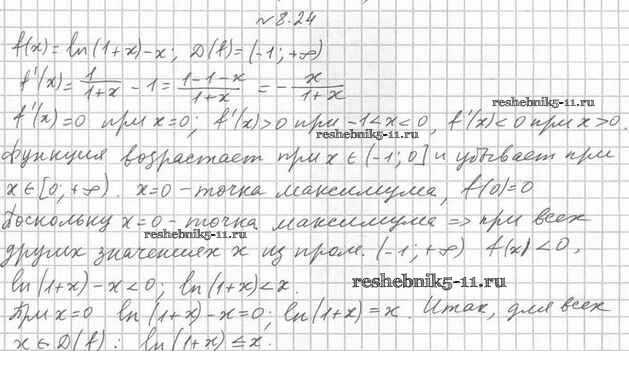 № 8.24
f(x) = ln(1+x) - x; D(f) = (-1; +∞)
f'(x) = 1/(1+x) - 1 = (1-1-x)/(1+x) = - x/(1+x)
reshebnik5-11.ru
f'(x) = 0 при x=0; f'(x)>0 при -1<x<0, f'(x)<0 при x>0.
reshebnik5-11.ru
Функция возрастает при x∈(-1; 0] и убывает при
x∈[0; +∞). x=0 - точка максимума, f(0)=0
Поскольку x=0 - точка максимума => при всех
reshebnik5-11.ru
других значениях x из пром. (-1; +∞) f(x)<0,
ln(1+x) - x < 0; ln(1+x) < x.
reshebnik5-11.ru
При x=0 ln(1+x) - x = 0; ln(1+x) = x. Итак, для всех
x∈D(f): ln(1+x) ≤ x.